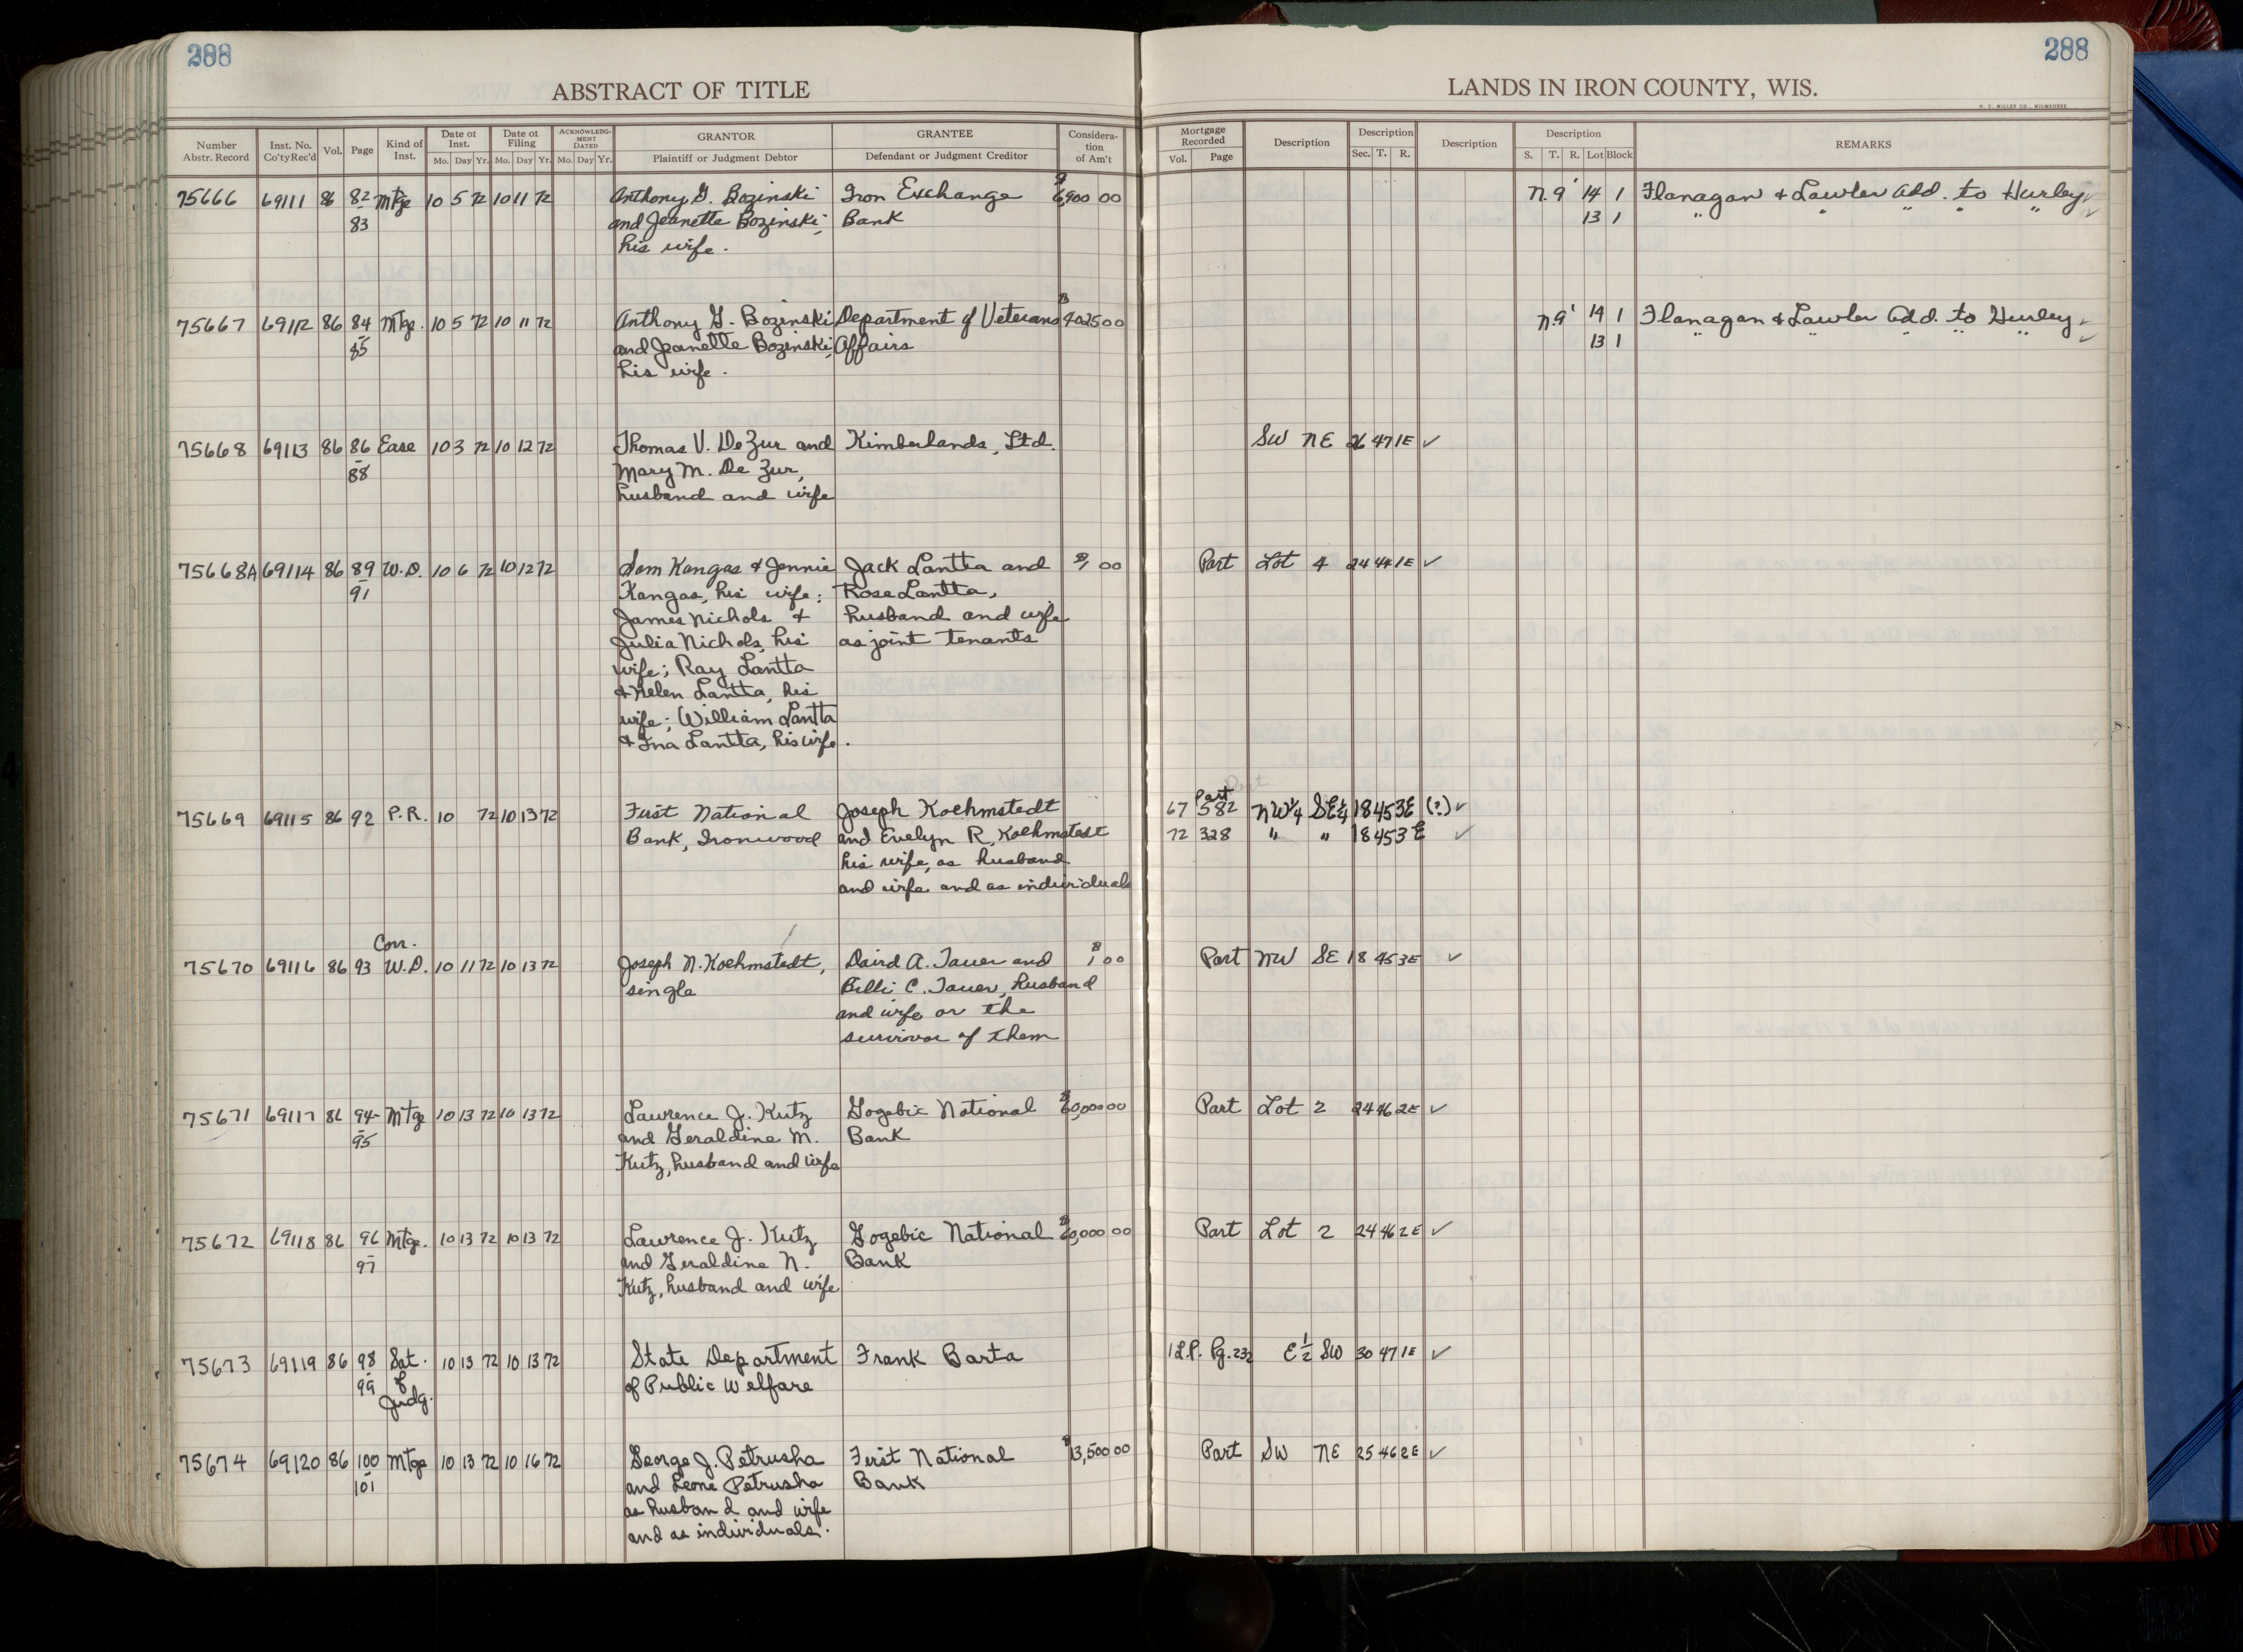 288
288
ABSTRACT OF TITLE
LANDS IN IRON COUNTY, WIS.
H. C. MILLER CO., MILWAUKEE
Number Abstr. Record | Inst. No. Co'ty Rec'd | Vol. | Page | Kind of Inst. | Date of Inst. Mo. Day Yr. | Date of Filing Mo. Day Yr. | ACKNOWLEDGMENT DATED Mo. Day Yr. | GRANTOR Plaintiff or Judgment Debtor | GRANTEE Defendant or Judgment Creditor | Consideration of Am't | Mortgage Recorded Vol. Page | Description | Description Sec. T. R. | Description | Description S. T. R. Lot Block | REMARKS
75666 69111 86 82 Mtge 10 5 72 10 11 72 Anthony G. Bozinski Iron Exchange $6,900 00 N. 9' 14 1 Flanagan & Lawler Add. to Hurley ✓
83 and Jeanette Bozinski, Bank 13 1 " " " " " ✓
his wife.
75667 69112 86 84 Mtge. 10 5 72 10 11 72 Anthony G. Bozinski Department of Veterans $4025 00 N. 9' 14 1 Flanagan & Lawler Add. to Hurley ✓
85 and Jeanette Bozinski, Affairs 13 1 " " " " " ✓
his wife.
75668 69113 86 86 Ease 10 3 72 10 12 72 Thomas V. De Zur and Kimberlands, Ltd. SW NE 26 47 1E ✓
88 Mary M. De Zur,
husband and wife
75668A 69114 86 89 W.D. 10 6 72 10 12 72 Sam Kangas & Jennie Jack Lantta and $1 00 Part Lot 4 24 44 1E ✓
91 Kangas, his wife; Rose Lantta,
James Nichols & husband and wife
Julia Nichols, his as joint tenants
wife; Ray Lantta
& Helen Lantta, his
wife; William Lantta
& Ina Lantta, his wife.
Part
75669 69115 86 92 P.R. 10 72 10 13 72 First National Joseph Koehmstedt 67 582 NW¼ SE¼ 18 45 3E (?) ✓
Bank, Ironwood and Evelyn R. Koehmstedt 72 328 " " 18 45 3E ✓
his wife, as husband
and wife and as individuals
Corr.
75670 69116 86 93 W.D. 10 11 72 10 13 72 Joseph N. Koehmstedt, David A. Tauer and $1 00 Part NW SE 18 45 3E ✓
single Billi C. Tauer, husband
and wife or the
survivor of them
75671 69117 86 94- Mtge 10 13 72 10 13 72 Lawrence J. Kutz Gogebic National $60,000 00 Part Lot 2 24 46 2E ✓
95 and Geraldine M. Bank
Kutz, husband and wife
75672 69118 86 96 Mtge. 10 13 72 10 13 72 Lawrence J. Kutz Gogebic National 000 00 Part Lot 2 24 46 2E ✓
97 and Geraldine N. Bank
Kutz, husband and wife
75673 69119 86 98 Sat. 10 13 72 10 13 72 State Department Frank Barta 1 L.P. Pg. 232 E½ SW 30 47 1E ✓
99 of of Public Welfare
Judg.
75674 69120 86 100 Mtge 10 13 72 10 16 72 George J. Petrusha First National $13,500 00 Part SW NE 25 46 2E ✓
101 and Leone Petrusha Bank
as husband and wife
and as individuals.